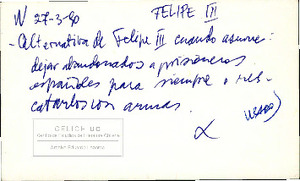 N 27-3-90 FELIPE III
- Alternativa de Felipe III cuando asume:
dejar abandonados a prisioneros
españoles para siempre o res-
catarlos con armas.
(USADO)
CELICH UC